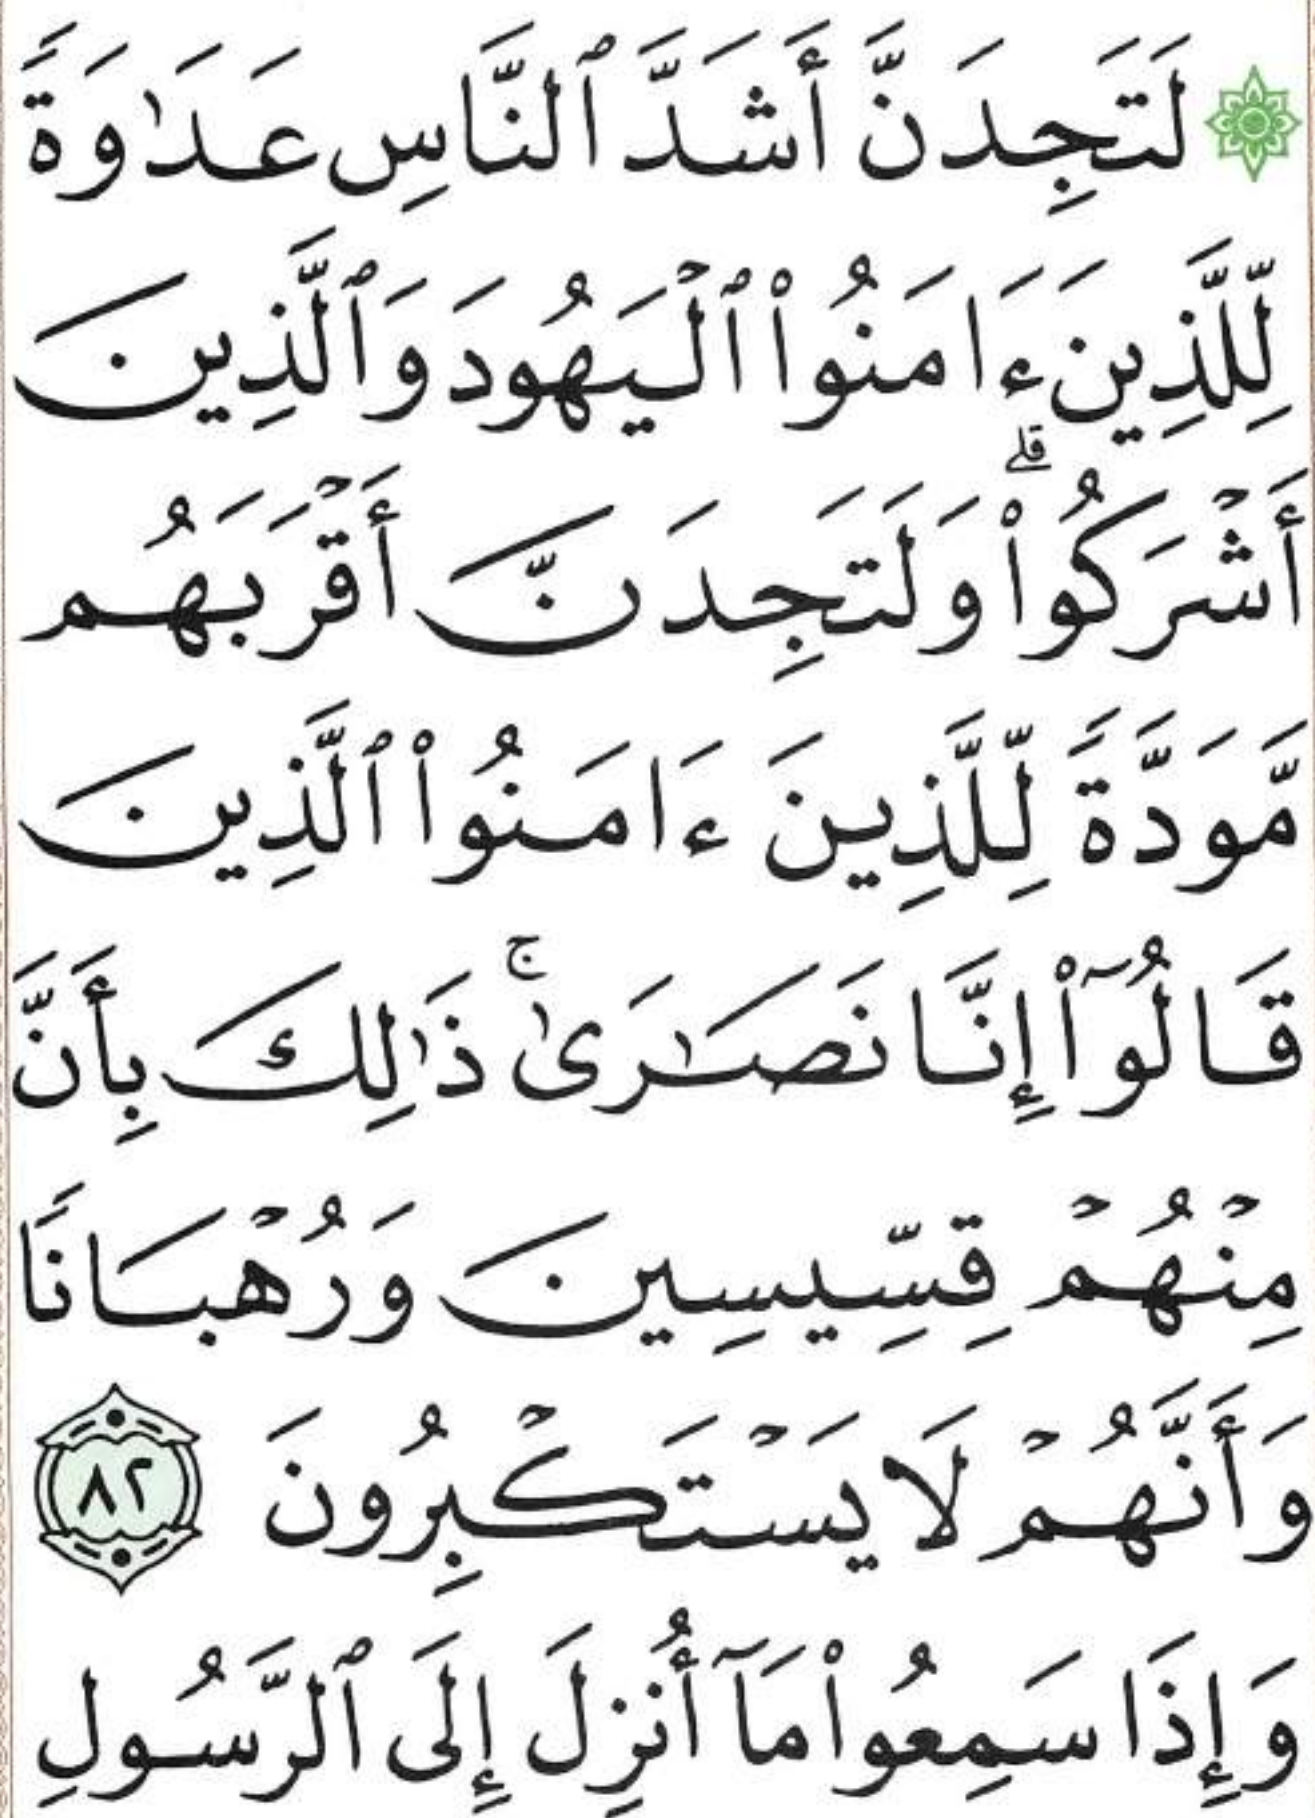 ۞ لَتَجِدَنَّ أَشَدَّ ٱلنَّاسِ عَدَٰوَةً
لِّلَّذِينَ ءَامَنُوا۟ ٱلۡيَهُودَ وَٱلَّذِينَ
أَشۡرَكُوا۟ۖ وَلَتَجِدَنَّ أَقۡرَبَهُم
مَّوَدَّةً لِّلَّذِينَ ءَامَنُوا۟ ٱلَّذِينَ
قَالُوٓا۟ إِنَّا نَصَٰرَىٰۚ ذَٰلِكَ بِأَنَّ
مِنۡهُمۡ قِسِّيسِينَ وَرُهۡبَانًا
وَأَنَّهُمۡ لَا يَسۡتَكۡبِرُونَ ٨٢
وَإِذَا سَمِعُوا۟ مَآ أُنزِلَ إِلَى ٱلرَّسُولِ